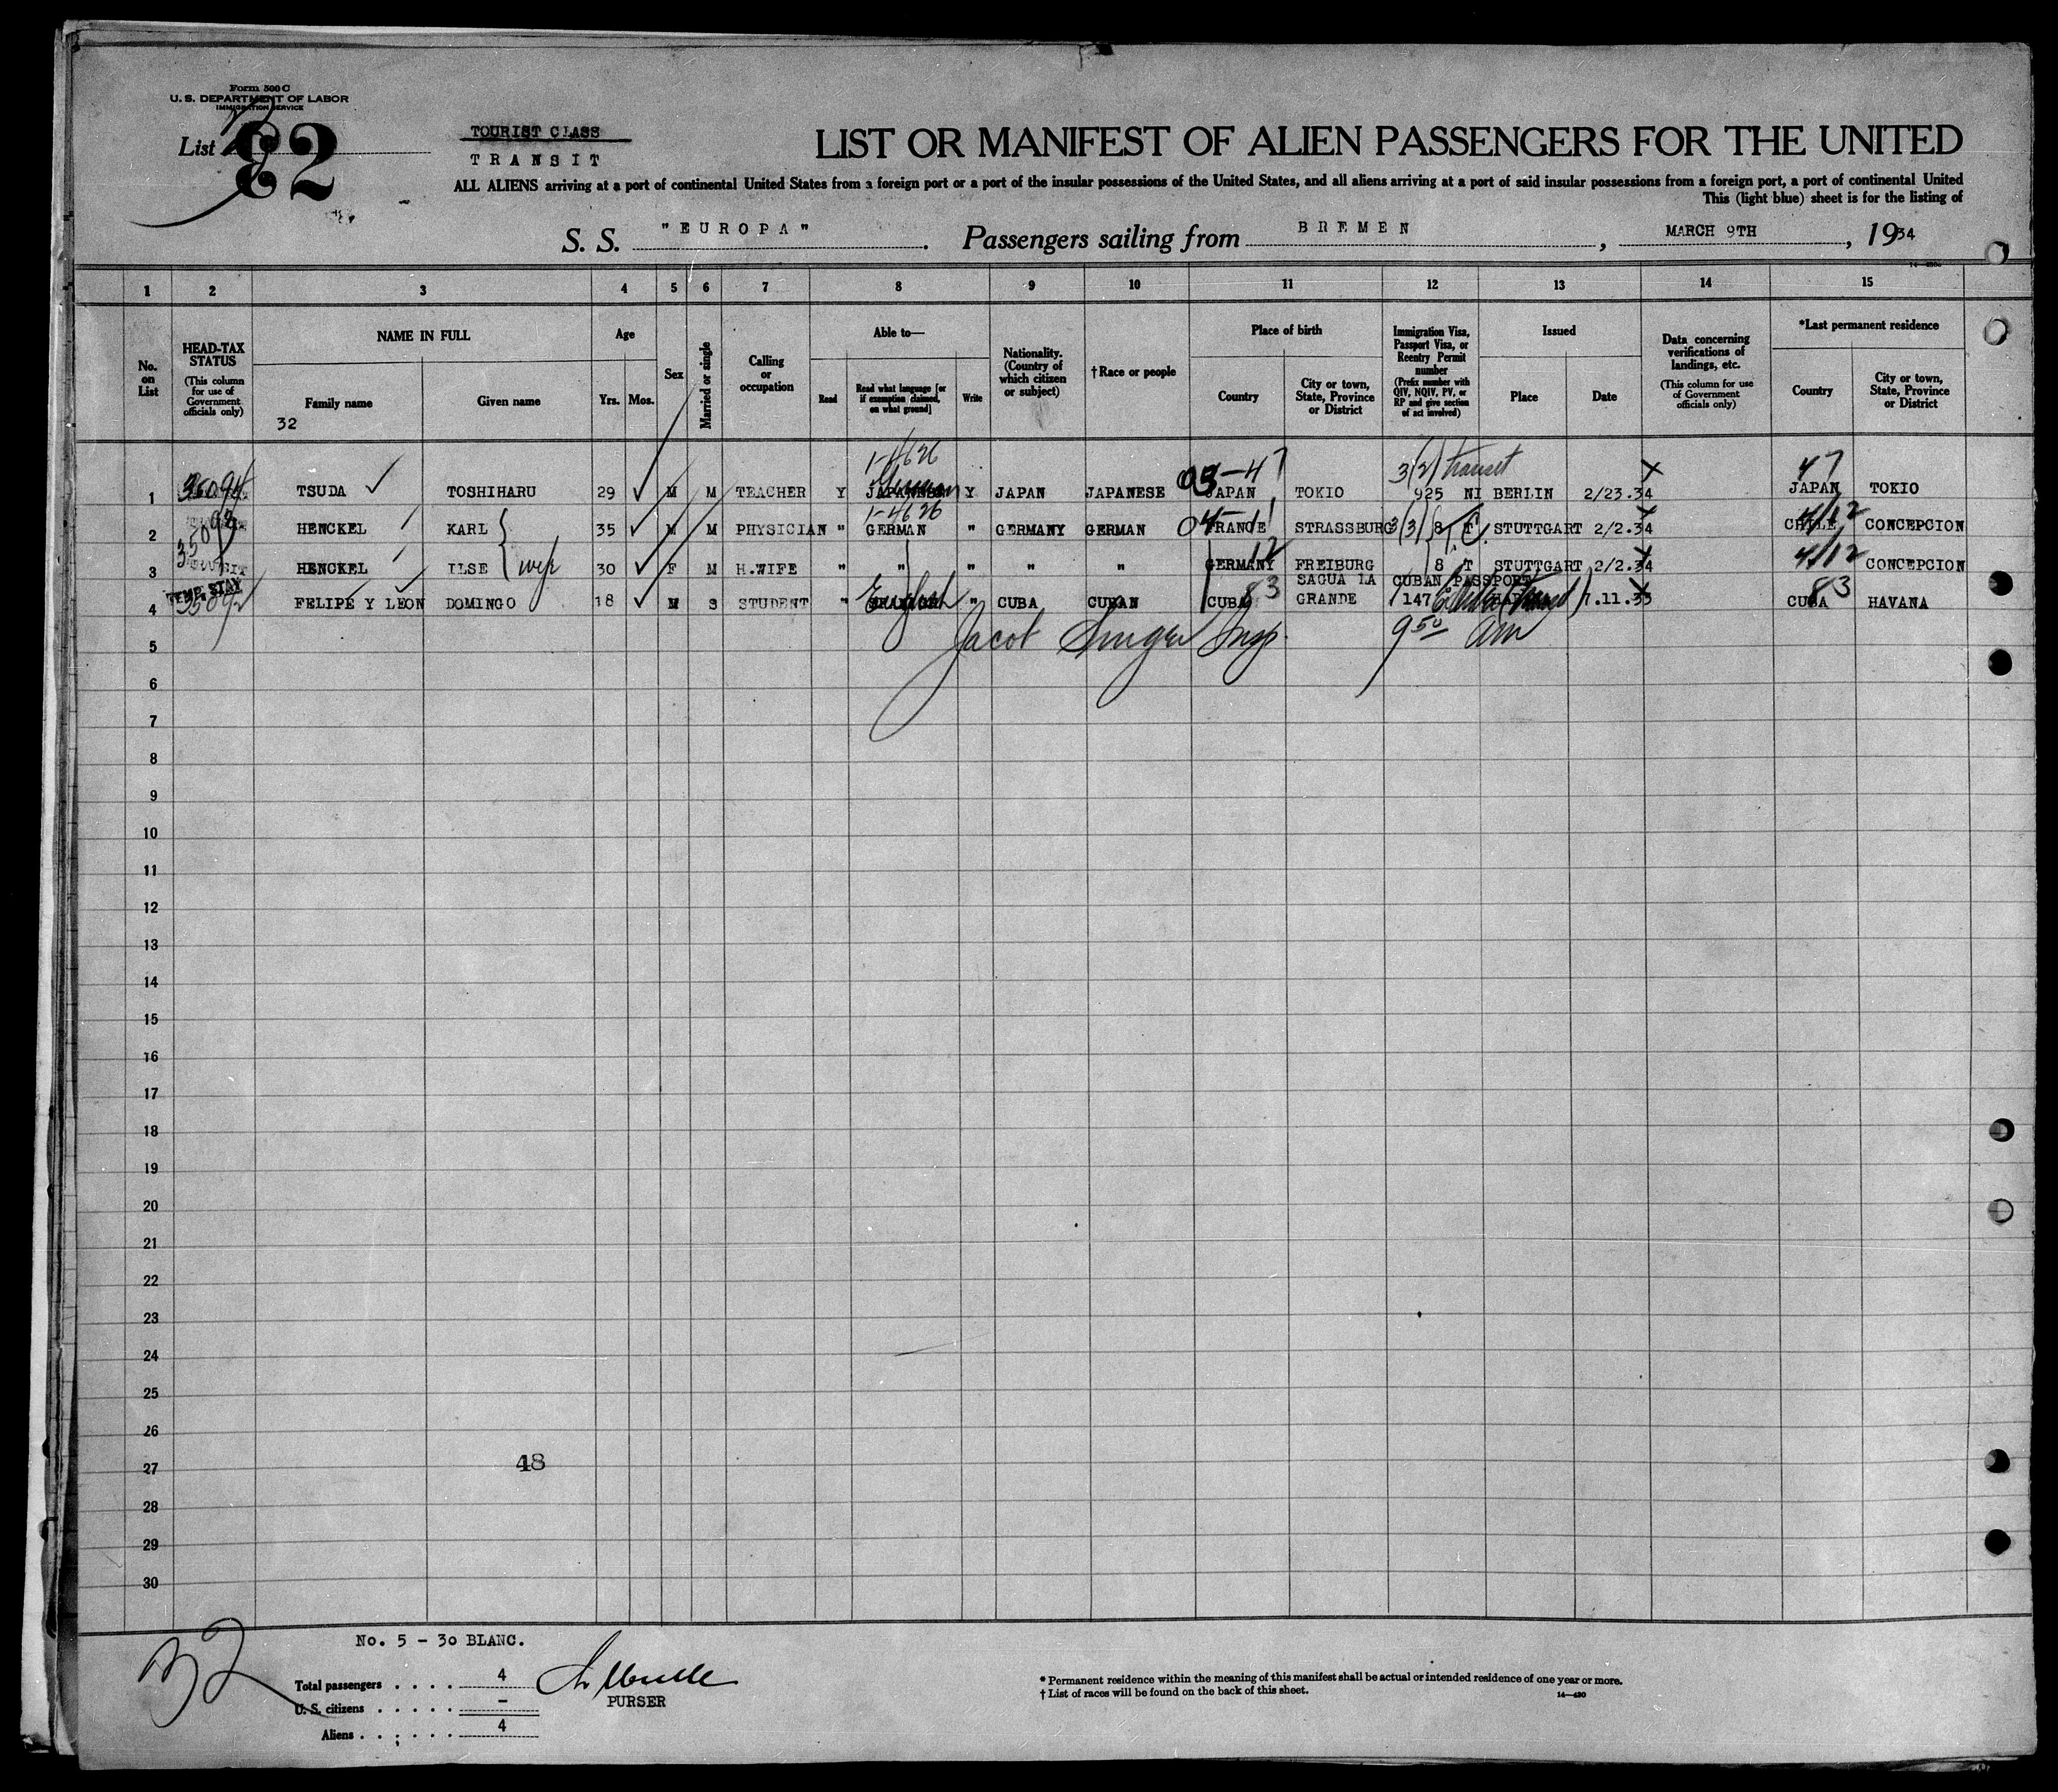 Form 500 C
U. S. DEPARTMENT OF LABOR
IMMIGRATION SERVICE
List 32
TOURIST CLASS
TRANSIT
LIST OR MANIFEST OF ALIEN PASSENGERS FOR THE UNITED
ALL ALIENS arriving at a port of continental United States from a foreign port or a port of the insular possessions of the United States, and all aliens arriving at a port of said insular possessions from a foreign port, a port of continental United
This (light blue) sheet is for the listing of
S. S. "EUROPA". Passengers sailing from BREMEN, MARCH 9TH, 1934
1 2 3 4 5 6 7 8 9 10 11 12 13 14 15
No. on List
HEAD-TAX STATUS
(This column for use of Government officials only)
NAME IN FULL
Family name
Given name
32
Age
Yrs. Mos.
Sex
Married or single
Calling or occupation
Able to—
Read
Read what language [or if exemption claimed, on what ground]
Write
Nationality. (Country of which citizen or subject)
†Race or people
Place of birth
Country
City or town, State, Province or District
Immigration Visa, Passport Visa, or Reentry Permit number
(Prefix number with QIV, NQIV, PV, or RP and give section of act involved)
Issued
Place
Date
Data concerning verifications of landings, etc.
(This column for use of Government officials only)
*Last permanent residence
Country
City or town, State, Province or District
1-4626 3(2) transit
1 TSUDA TOSHIHARU 29 M M TEACHER Y JAPANESE German Y JAPAN JAPANESE JAPAN TOKIO 925 NI BERLIN 2/23.34 X 47 JAPAN TOKIO
1-4626
2 HENCKEL KARL 35 M M PHYSICIAN " GERMAN " GERMANY GERMAN FRANCE STRASSBURG 3(3) 8 T STUTTGART 2/2.34 X CHILE 4/12 CONCEPCION
3 HENCKEL ILSE wife 30 F M H.WIFE " " " " " GERMANY 12 FREIBURG 8 T STUTTGART 2/2.34 X 4/12 CONCEPCION
TEMP. STAY SAGUA LA CUBAN PASSPORT
4 FELIPE Y LEON DOMINGO 18 M S STUDENT " English " CUBA CUBAN CUBA 83 GRANDE 147 7.11.33 X CUBA 83 HAVANA
5 Jacob Singer Insp. 9 50 am
6
7
8
9
10
11
12
13
14
15
16
17
18
19
20
21
22
23
24
25
26
27 48
28
29
30
32
No. 5 - 30 BLANC.
Total passengers . . . . 4
U. S. citizens . . . . . –
Aliens . . . . . . 4
PURSER
* Permanent residence within the meaning of this manifest shall be actual or intended residence of one year or more.
† List of races will be found on the back of this sheet.
14—420